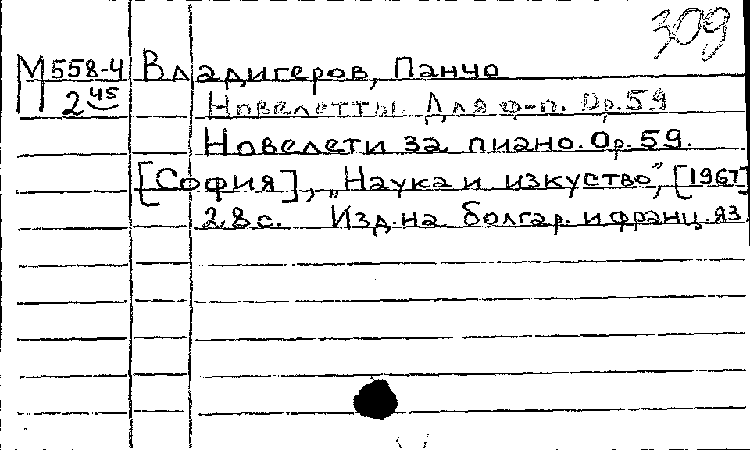 309
М558-4 Владигеров, Панчо
2 45 Новелетты. Для ф-п. Op.59
Новелети за пиано. Op.59.
[София], „Наука и изкуство", [1967]
28 с. Изд. на болгар. и франц. яз.